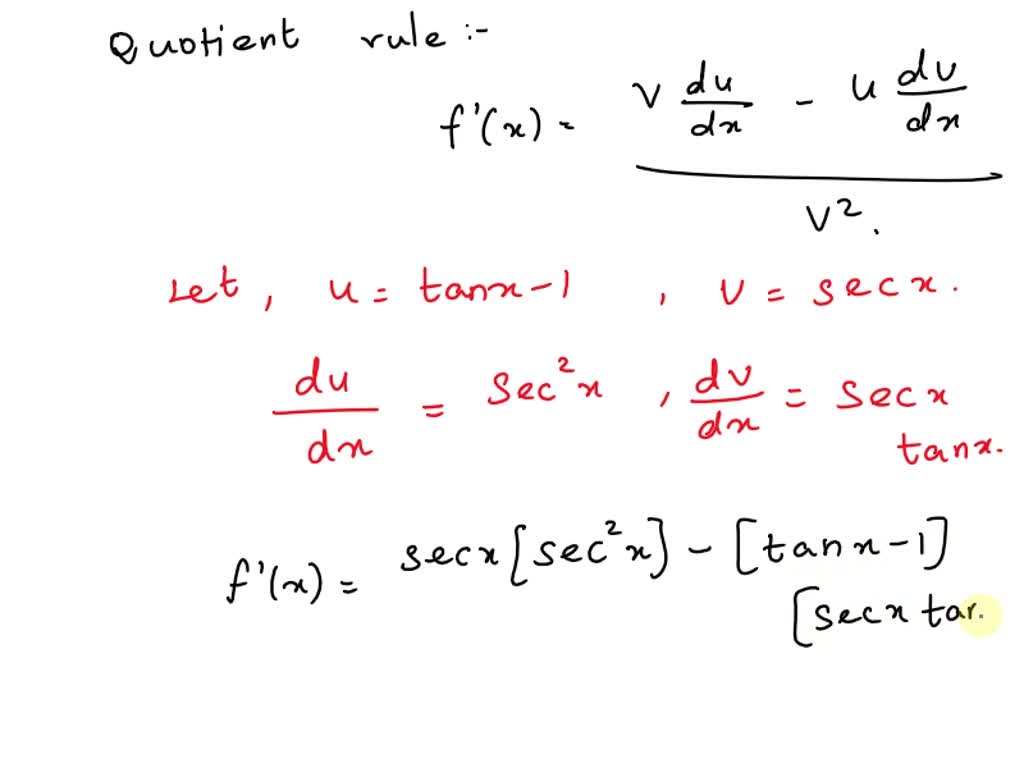 Quotient rule :-
f'(x) = v du/dx - u dv/dx
v².
Let , u = tanx-1 , v = secx.
du/dx = sec²x , dv/dx = secx
tanx.
f'(x) = secx[sec²x] - [tanx-1]
[secx tan